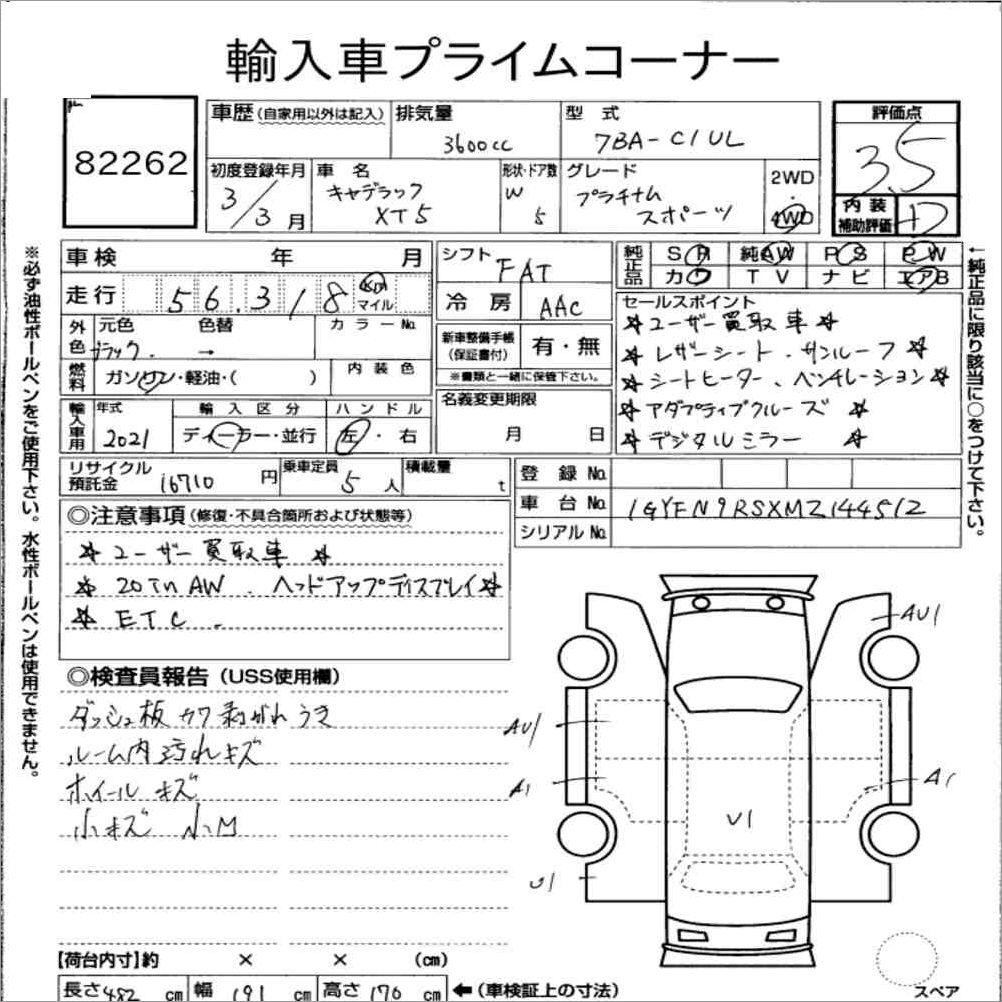 輸入車プライムコーナー
82262
車歴(自家用以外は記入) 排気量 3600cc 型式 7BA-C1UL
評価点 3.5
初度登録年月 3/3月 車名 キャデラック XT5 形状・ドア数 W 5 グレード プラチナム スポーツ 2WD 4WD
内装補助評価 +D
車検 年 月
走行 56,318 km マイル
外色 元色 ブラック 色替 → カラーNo.
燃料 ガソリン・軽油・( ) 内装色
輸入車用 年式 2021 輸入区分 ディーラー・並行 ハンドル 左・右
シフト FAT
冷房 AAC
新車整備手帳(保証書付) 有・無
※書類と一緒に保管下さい。
名義変更期限 月 日
純正品 SR 純AW PS PW
カワ TV ナビ エアB
セールスポイント
☆ユーザー買取車☆
☆レザーシート、サンルーフ☆
☆シートヒーター、ベンチレーション☆
☆アダプティブクルーズ☆
☆デジタルミラー ☆
←純正品に限り該当に○をつけて下さい。
※必ず油性ボールペンをご使用下さい。水性ボールペンは使用できません。
リサイクル預託金 16710円 乗車定員 5人 積載量 t
登録No.
車台No. 1GYFN9RSXMZ144512
シリアルNo.
◎注意事項(修復・不具合箇所および状態等)
☆ユーザー買取車☆
☆20インAW、ヘッドアップディスプレイ☆
☆ETC、
◎検査員報告(USS使用欄)
ダッシュ板カワ剥がれうき
ルーム内汚れキズ
ホイールキズ
小キズ 小凹
AU1
AU1
A1
A1
U1
U1
【荷台内寸】約 × × (cm)
長さ482cm 幅191cm 高さ170cm ←(車検証上の寸法)
スペア